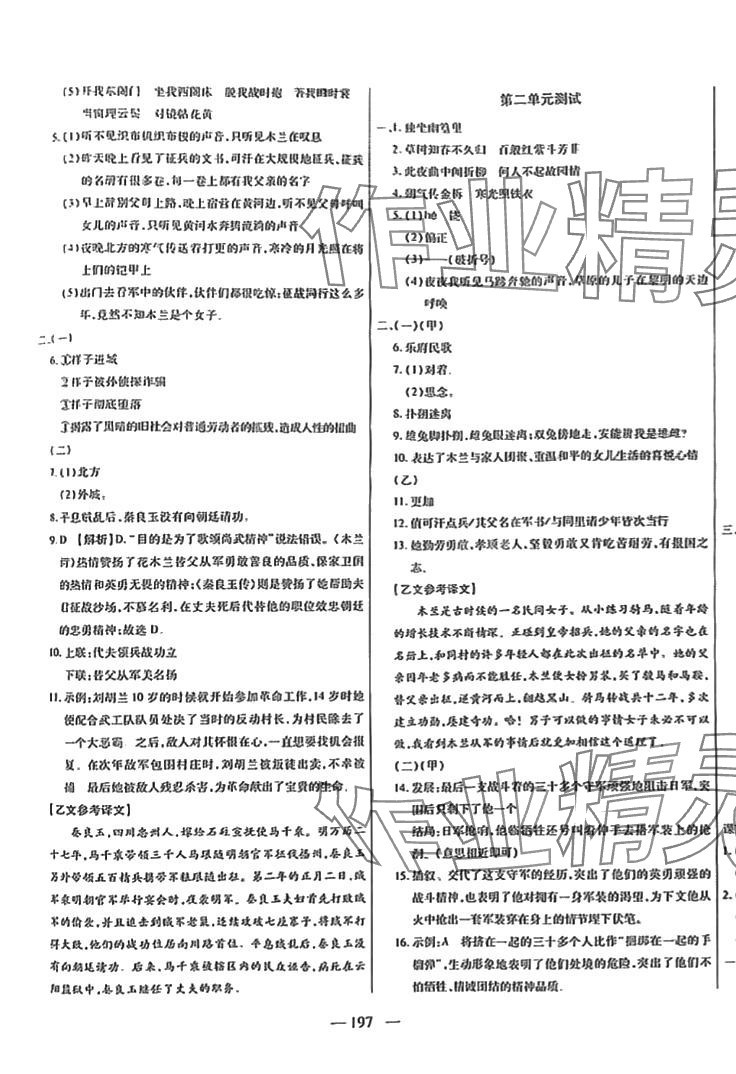 (5)开我东阁门 坐我西阁床 脱我战时袍 著我旧时裳
当窗理云鬓 对镜帖花黄
5.(1)听不见织布机织布梭的声音,只听见木兰在叹息
(2)昨天晚上看见征兵的文书,可汗在大规模地征兵,征兵
的名册有很多卷,每一卷上都有我父亲的名字
(3)早上辞别父母上路,晚上宿营在黄河边,听不见父母呼叫
女儿的声音,只听见黄河水奔腾流淌的声音.
(4)夜晚北方的寒气传送着打更的声音,寒冷的月光照在将
士们的铠甲上
(5)出门去看军中的伙伴,伙伴们都很吃惊:征战同行这么多
年,竟然不知木兰是个女子.
二.(一)
6.①祥子进城
②祥子被孙侦探诈骗
③祥子彻底堕落
④揭露了黑暗的旧社会对普通劳动者的摧残,造成人性的扭曲
(二)
7.(1)北方
(2)外城.
8.平息叛乱后,秦良玉没有向朝廷请功.
9.D 【解析】D."目的是为了歌颂尚武精神"说法错误。《木兰
诗》热情赞扬了花木兰替父从军勇敢善良的品质、保家卫国
的热情和英勇无畏的精神;《秦良玉传》则赞扬了她帮助夫
君征战沙场,不慕名利,在丈夫死后代替他的职位效忠朝廷
的忠勇精神;故选D.
10.上联:代夫领兵战功立
下联:替父从军美名扬
11.示例:刘胡兰10岁的时候就开始参加革命工作,14岁时她
便配合武工队队员处决了当时的反动村长,为村民除去了
一个大恶霸 之后,敌人对其怀恨在心,一直想要找机会报
复.在次年敌军包围村庄时,刘胡兰被叛徒出卖,不幸被
捕 最后她被敌人残忍杀害,为革命献出了宝贵的生命.
【乙文参考译文】
秦良玉,四川忠州人,嫁给石砫宣抚使马千乘。明万历二
十七年,马千乘带领三千人马跟随朝廷官军征伐播州,秦良
玉又另外统领五百精兵携带军粮跟随.第二年的正月二日,贼
军乘官军举行宴会时,夜袭明军.秦良玉夫妇首先击败了贼军
的偷袭,并且追入贼军老巢,连续攻破七座寨子,将贼军打
得大败,他们的战功位居南川路首位.平息贼乱后,秦良玉没
向朝廷请功.后来,马千乘被辖区内的民众诬告,病死在云
阳监狱中,秦良玉继任了丈夫的职务.
第二单元测试
一、1.独坐幽篁里
2.草树知春不久归 百般红紫斗芳菲
3.此夜曲中闻折柳 何人不起故园情
4.朔气传金柝 寒光照铁衣
5.(1)hè 饶
(2)偏正
(3)——(破折号)
(4)夜夜我听见马蹄奔驰的声音,草原的儿子在黎明的天边
呼唤
二、(一)(甲)
6.乐府民歌
7.(1)对着.
(2)思念。
8.扑朔迷离
9.雄兔脚扑朔,雌兔眼迷离;双兔傍地走,安能辨我是雄雌?
10.表达了木兰与家人团聚、重温和平的女儿生活的喜悦心情
(乙)
11.更加
12.值可汗点兵/其父名在军书/与同里诸少年皆次当行
13.她勤劳勇敢,孝顺老人,坚毅勇敢又肯吃苦耐劳,有报国之
志.
【乙文参考译文】
木兰是古时候的一名民间女子。从小练习骑马,随着年龄
的增长技术不断精深。正碰到皇帝招兵,她的父亲的名字也在
名册上,和同村的许多年轻人都在此次出征的名单中。她的父
亲因年老多病而不能胜任.木兰便女扮男装,买了骏马和马鞍,
替父亲出征.逆黄河而上,翻越黑山.骑马转战共十二年,多次
建立功勋,屡建奇功。哈!男子可以做的事情女子未必不可以
做,我看到木兰从军的事情后就更加相信这个道理了.
(二)(甲)
14.发展:最后一支战斗着的三十多个守军顽强地阻击日军,突
围后只剩下了他一个
结局:日军枪响,他临牺牲还另叫着伸手去摸军装上的枪
刺.(意思相近即可)
15.插叙、交代了这支守军的经历,突出了他们的英勇顽强的
战斗精神,也表明了他对拥有一身军装的渴望,为下文他从
火中抢出一套军装穿在身上的情节埋下伏笔。
16.示例:A 将挤在一起的三十多个人比作"捆绑在一起的手
榴弹",生动形象地表明了他们的危险,突出了他们不
怕牺牲、精诚团结的精神品质.
— 197 —
三.
作业精灵
作业精灵